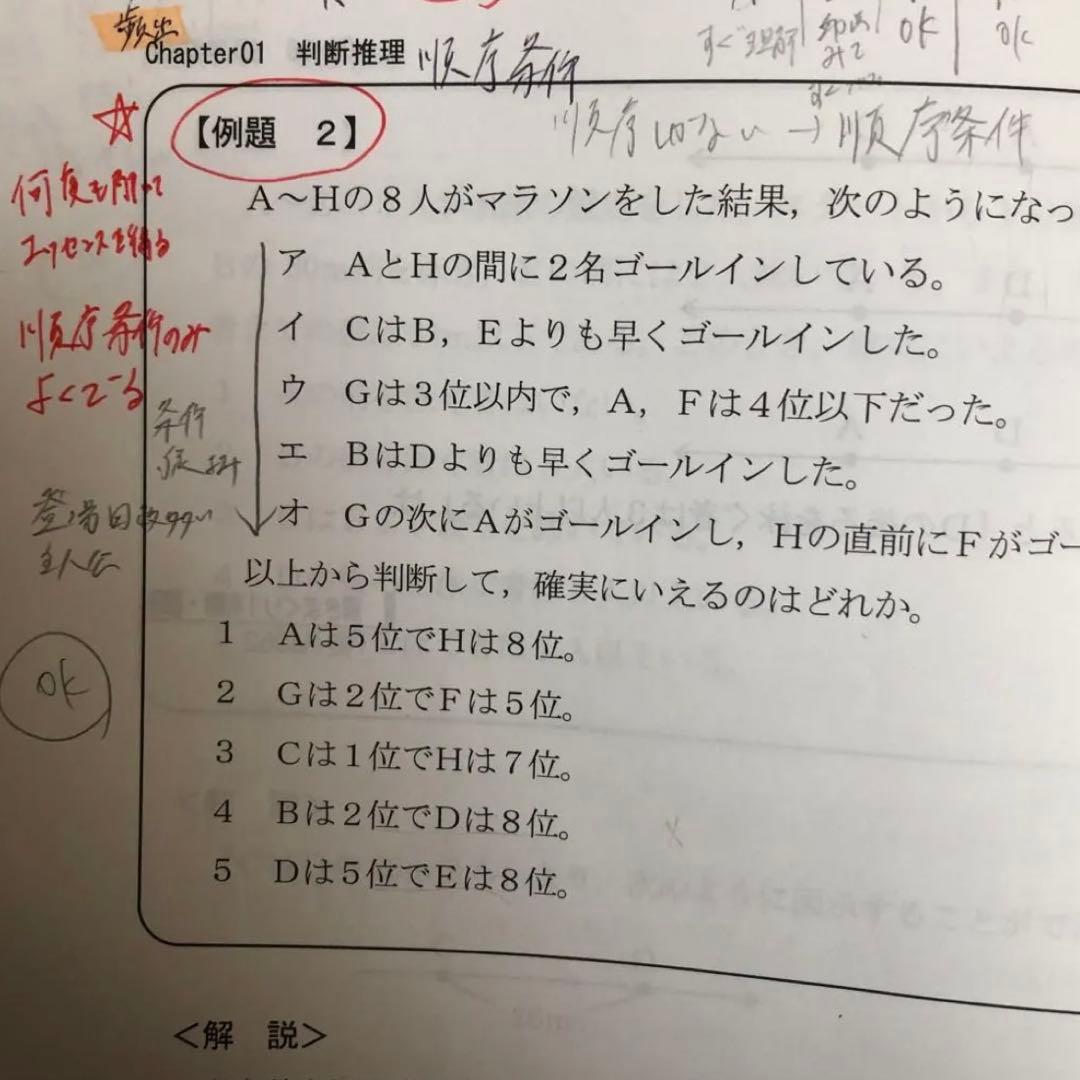 頻出
Chapter01 判断推理 順序条件
すぐ理解 OK ok
【例題 2】
順序しかない→順序条件
A～Hの8人がマラソンをした結果，次のようになっ
ア AとHの間に2名ゴールインしている。
イ CはB，Eよりも早くゴールインした。
ウ Gは3位以内で，A，Fは4位以下だった。
エ BはDよりも早くゴールインした。
オ Gの次にAがゴールインし，Hの直前にFがゴー
以上から判断して，確実にいえるのはどれか。
1 Aは5位でHは8位。
2 Gは2位でFは5位。
3 Cは1位でHは7位。
4 Bは2位でDは8位。
5 Dは5位でEは8位。
何度も
エッセンスを
順序条件のみ
よくでる
条件
登場回数多い
主人公
ok
＜解 説＞